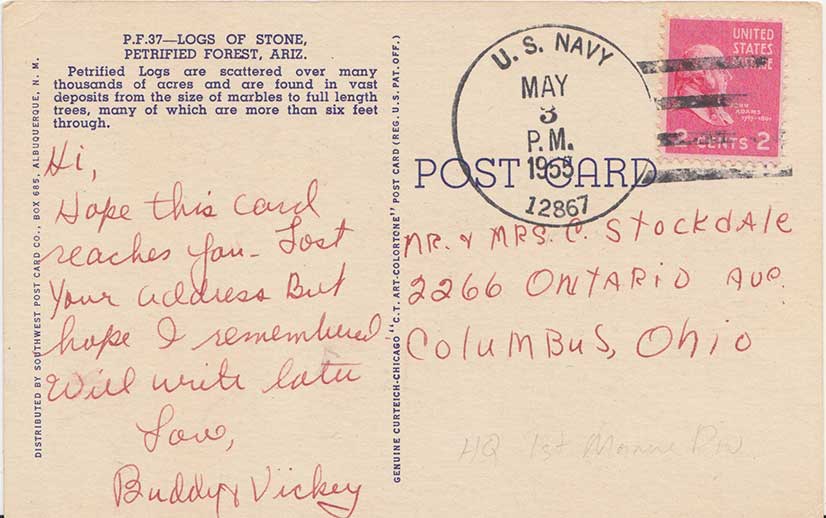 P.F.37—LOGS OF STONE,
PETRIFIED FOREST, ARIZ.
Petrified Logs are scattered over many
thousands of acres and are found in vast
deposits from the size of marbles to full length
trees, many of which are more than six feet
through.
DISTRIBUTED BY SOUTHWEST POST CARD CO., BOX 685, ALBUQUERQUE, N. M.
Hi,
Hope this card
reaches you - Lost
Your address But
hope I remembered
Will write later
Love,
Buddy & Vickey
GENUINE CURTEICH-CHICAGO "C.T. ART-COLORTONE" POST CARD (REG. U.S. PAT. OFF.)
U. S. NAVY
MAY
3
P.M.
1955
12867
UNITED
STATES
JOHN
ADAMS
1797-1801
2 CENTS 2
POST CARD
MR. & MRS. C. STOCKDALE
2266 ONTARIO AVE.
COLUMBUS, OHIO
HQ 1st Marine Div